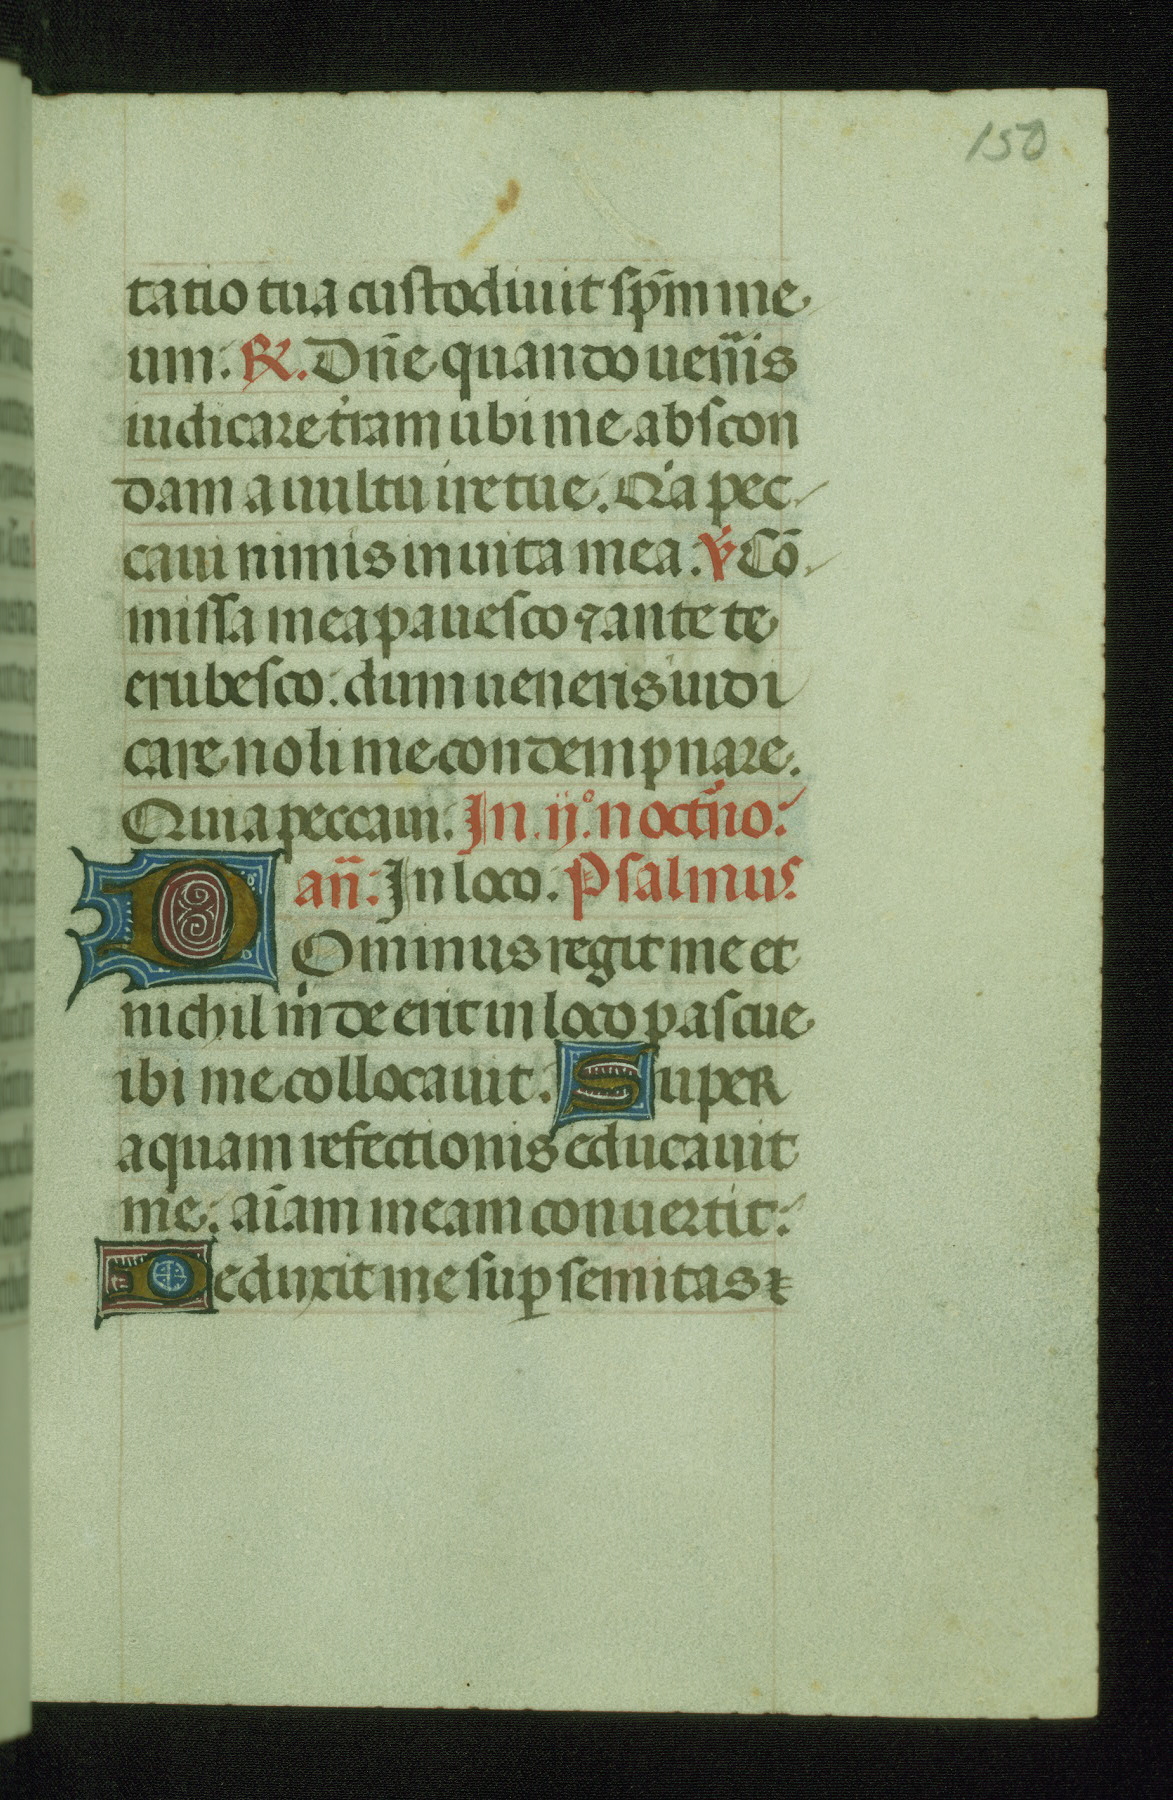 150
tatio tua custodiuit sp̄m me
um: ℟. Dn̄e quando ueneris
iudicare t'ram ubi me abscon
dam a uultu ire tue. Q'a pec
caui nimis in uita mea: ℣ Cō
missa mea pauesco ⁊ ante te
erubesco: dum ueneris iudi
care noli me condempnare.
Quia peccaui: In. ij.° noct'no:
an̄: In loco: Psalmus
DOminus regit me et
nichil m' de erit in loco pascue
ibi me collocauit: Super
aquam refectionis educauit
me: aīam meam conuertit:
Deduxit me sup semitas